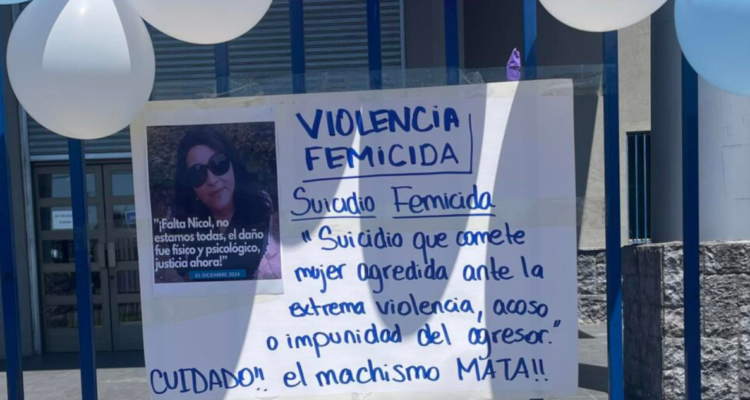 VIOLENCIA
FEMICIDA
Suicidio Femicida
"Suicidio que comete
mujer agredida ante la
extrema violencia, acoso
o impunidad del agresor."
CUIDADO!! el machismo MATA!!
"¡Falta Nicol, no
estamos todas, el daño
fue físico y psicológico,
justicia ahora!"